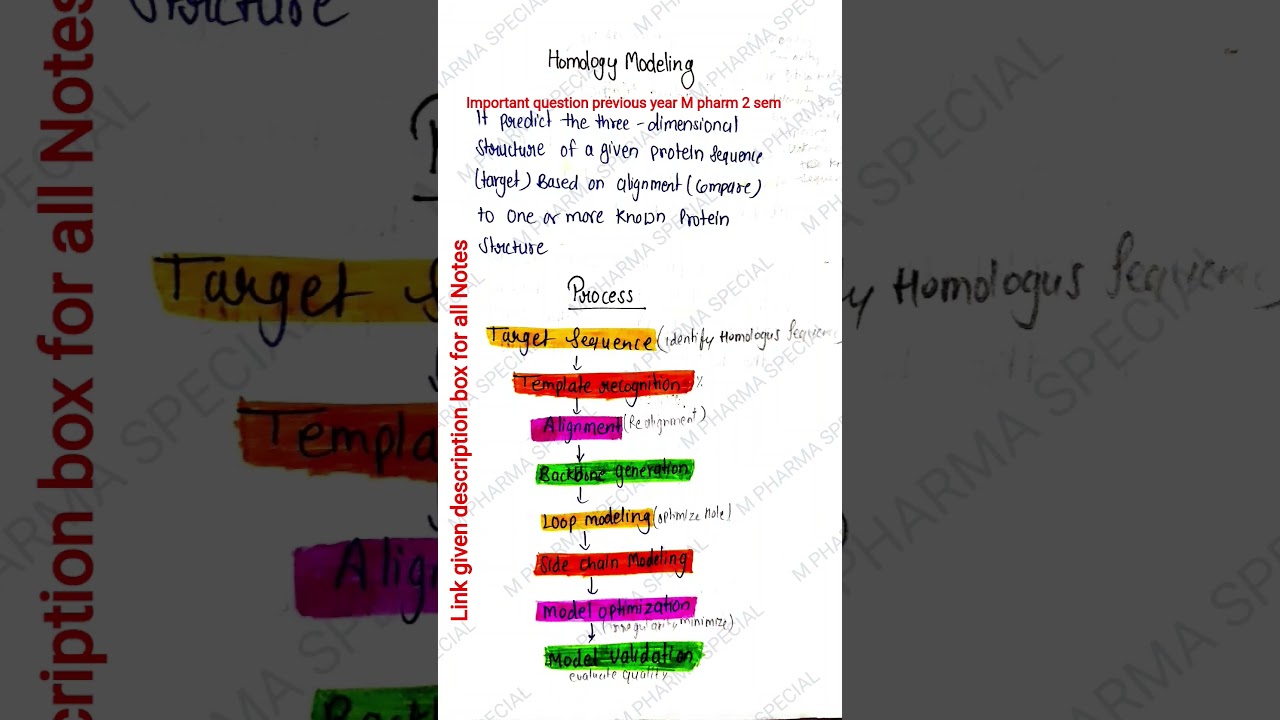 Homology Modeling
Important question previous year M pharm 2 sem
It predict the three-dimensional
structure of a given protein sequence
(target) Based on alignment (compare)
to one or more known Protein
Structure
Process
Target Sequence (identify Homologus Sequen
↓
Template recognition %
↓
Alignment (Realignment)
↓
Backbone generation
↓
Loop modeling (optimize Hole)
↓
Side chain Modeling
↓
Model optimization
↓ (irregularity minimize)
Model validation
evaluate quality
Link given description box for all Notes
M PHARMA SPECIAL